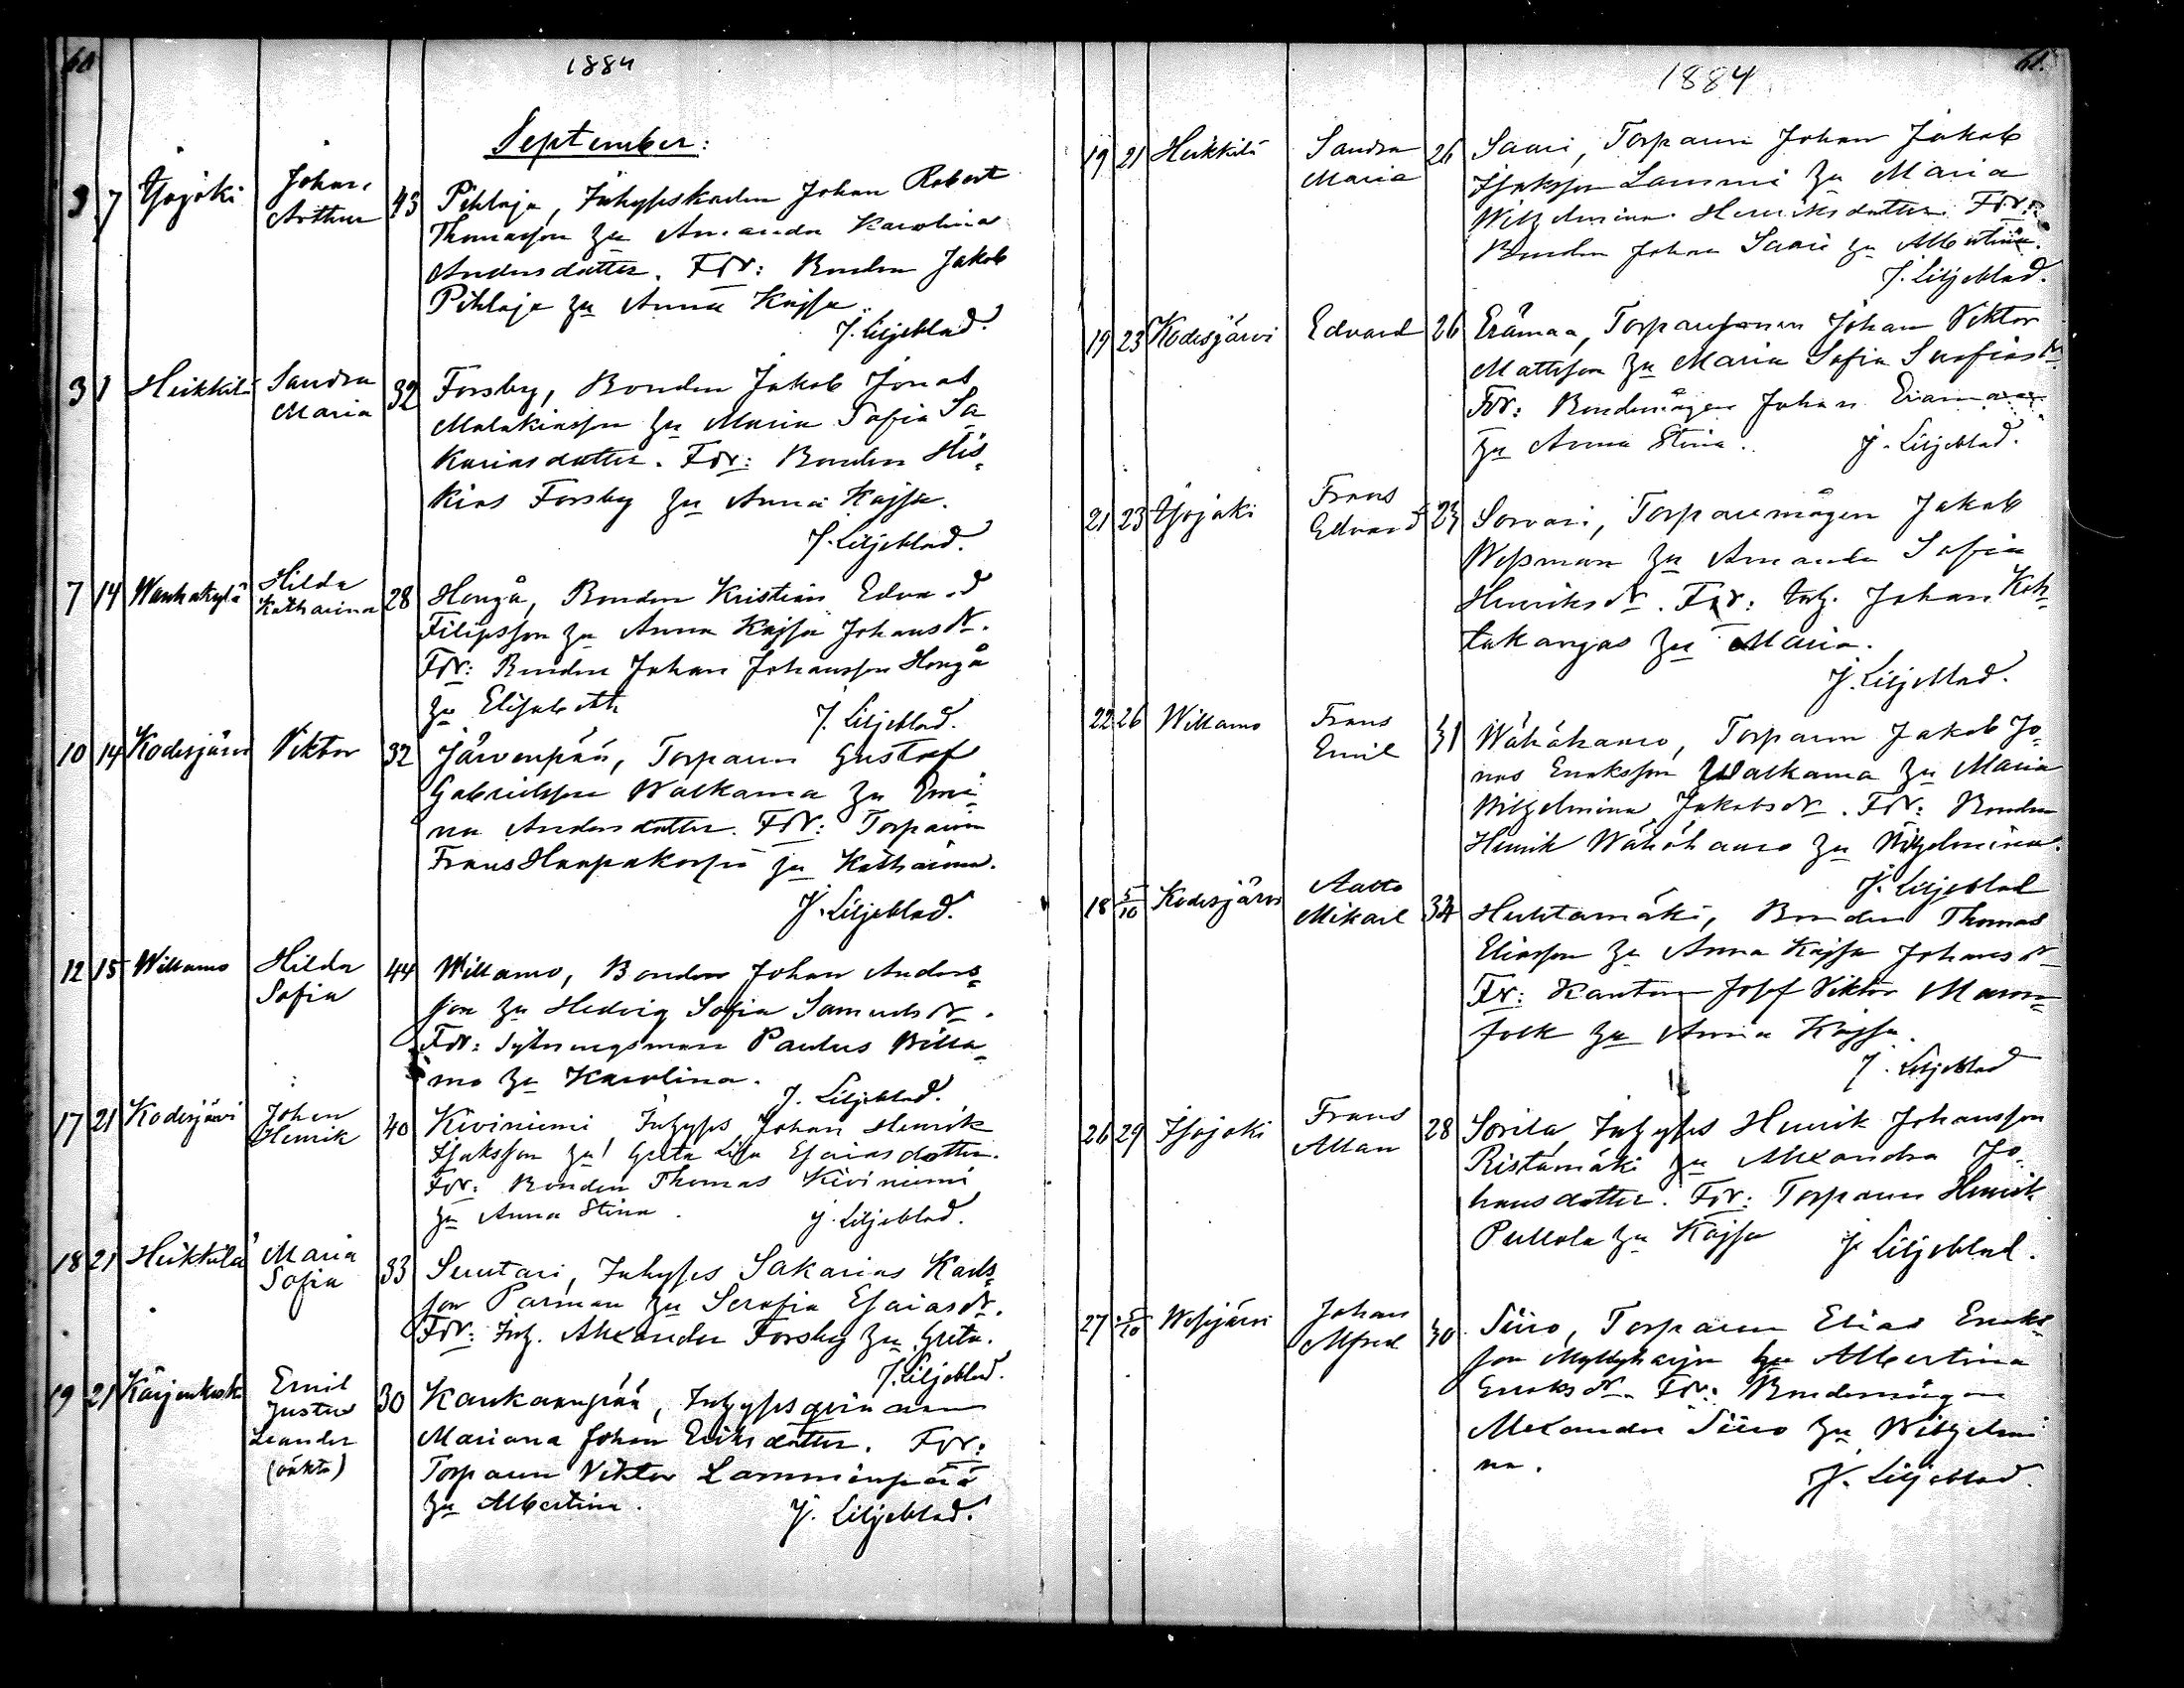 60
1884
September:
3 7 Isojoki Johan Arthur 43 Pihlaja, Inhyseskarlen Johan Robert
Thomasson hu Amanda Karolina
Andersdotter. Fdr: Bonden Jakob
Pihlaja hu Anna Kajsa.
J. Liljeblad.
3 7 Heikkilä Sandra Maria 32 Forsby, Bonden Jakob Jonas
Malakiasson hu Maria Sofia Sa
kariasdotter. Fdr: Bonden His
kias Forsby hu Anna Kajsa.
J. Liljeblad.
7 14 Wanhakylä Hilda Katharina 28 Hongå, Bonden Kristian Edvard
Filipsson hu Anna Kajsa Johansdr.
Fdr: Bonden Johan Johansson Hongå
hu Elisabeth
J. Liljeblad.
10 14 Kodesjärvi Viktor 32 Järvenpää, Torparen Gustaf
Gabrielsson Walkama hu Emi
na Andersdotter. Fdr: Torparen
Frans Haapakorpi hu Katharina.
J. Liljeblad.
12 15 Willamo Hilda Sofia 44 Willamo, Bonden Johan Anders
son hu Hedvig Sofia Samuelsdr.
Fdr: Sytningsman Paulus Willa
mo hu Karolina.
J. Liljeblad.
17 21 Kodesjärvi Johan Henrik 40 Kiviniemi Inhyses Johan Henrik
Isaksson hu Greta Lisa Esaiasdotter.
Fdr: Bonden Thomas Kiviniemi
hu Anna Stina.
J. Liljeblad.
18 21 Heikkilä Maria Sofia 33 Suutari, Inhyses Sakarias Karls
son Parman hu Serafia Esaiasdr.
Fdr: Inh. Alexander Forsby hu Greta.
J. Liljeblad.
19 21 Kärjenkoski Emil Gustav Leander (oäkta) 30 Kankaanpää, Inhysesqvinnan
Mariana Johan Eriksdotter. Fdr:
Torparen Viktor Lamminpää
hu Albertina.
J. Liljeblad.
61.
1884
19 21 Heikkilä Sandra Maria 26 Saari, Torparen Johan Jakob
Isaksson Lammi hu Maria
Wilhelmina Henriksdotter. Fdr:
Bonden Johan Saari hu Albertina.
J. Liljeblad.
19 23 Kodesjärvi Edvard 26 Erämaa, Torparesonen Johan Viktor
Mattsson hu Maria Sofia Serafiasdr.
Fdr: Bondemågen Johan Erämaa
hu Anna Stina.
J. Liljeblad.
21 23 Isojoki Frans Edvard 23 Sorvari, Torparemågen Jakob
Wessman hu Amanda Sofia
Henriksdr. Fdr: Inh. Johan Koh
takangas hu Maria.
J. Liljeblad.
22 26 Willamo Frans Emil 31 Wähähauro, Torparen Jakob Jo
nas Eriksson Walkama hu Maria
Wilhelmina Jakobsdr. Fdr: Bonden
Henrik Wähähauro hu Wilhelmina.
J. Liljeblad
18 5/10 Kodesjärvi Aatto Mikael 34 Huhtamäki, Bonden Thomas
Eliasson hu Anna Kajsa Johansdr
Fdr: Kantor Josef Viktor Mann
folk hu Anna Kajsa.
J. Liljeblad
26 29 Isojoki Frans Allan 28 Sorila, Inhyses Henrik Johansson
Ristamäki hu Alexandra Jo
hansdotter. Fdr: Torparen Henrik
Pullola hu Kajsa
J. Liljeblad.
27 5/10 Wesijärvi Johan Alfred 30 Siiro, Torparen Elias Eriks
son Myllyharju hu Albertina
Eriksdr. Fdr: Bondemågen
Alexander Siiro hu Wilhelmi
na.
J. Liljeblad.